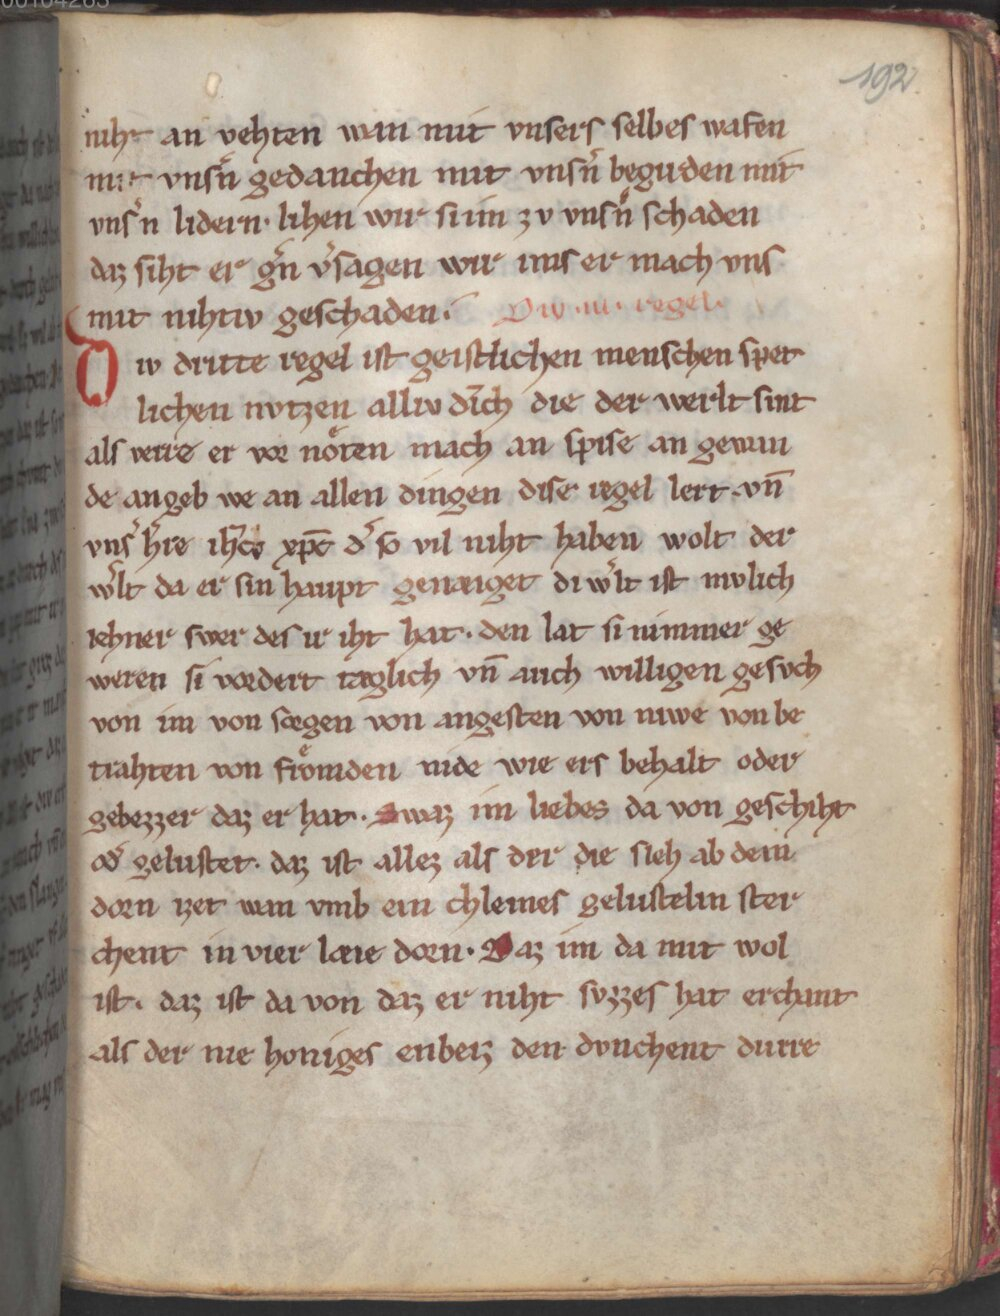 192
niht an vehten wan mit vnsers selbes wafen
mit vnsn̾ gedanchen mit vnsn̾ begirden mit
vns̾n lidern· lihen wir si im zv vnsn̾ schaden
daz siht er g̾n v̾sagen wir ims er mach vns
mit nihtiv geschaden. Div ·iii· regel·
Diw dritte regel ist geistlichen menschen spet
lichen nvtzen alliv dich die der werlt sint
als verre er vor nöten mach an spise an gewan
de an geb we an allen dingen dise regel lert vn̄
vns̾ h̾re ih̄c xp̄c d̾ so vil niht haben wolt der
w̾lt da er sin haupt genæiget di w̾lt ist wolich
lehner swer des ir iht hat· den lat si nimmer ge
weren si vordert tæglich vn̄ auch willigen gesvch
von im von sorgen von angesten von riwe von be
trahten von frömden nide wie ers behalt oder
gebezzer daz er hat· Swaz im liebes da von geschiht
od̾ gelustet· daz ist allez als der die sleh ab dem
dorn izet wan vmb ein chleines gelustelin ster
chent in vier læie dorn· Daz im da mit wol
ist· daz ist da von daz er niht svzzes hat erchant
als der nie honiges enbeiz den dvnchent durre